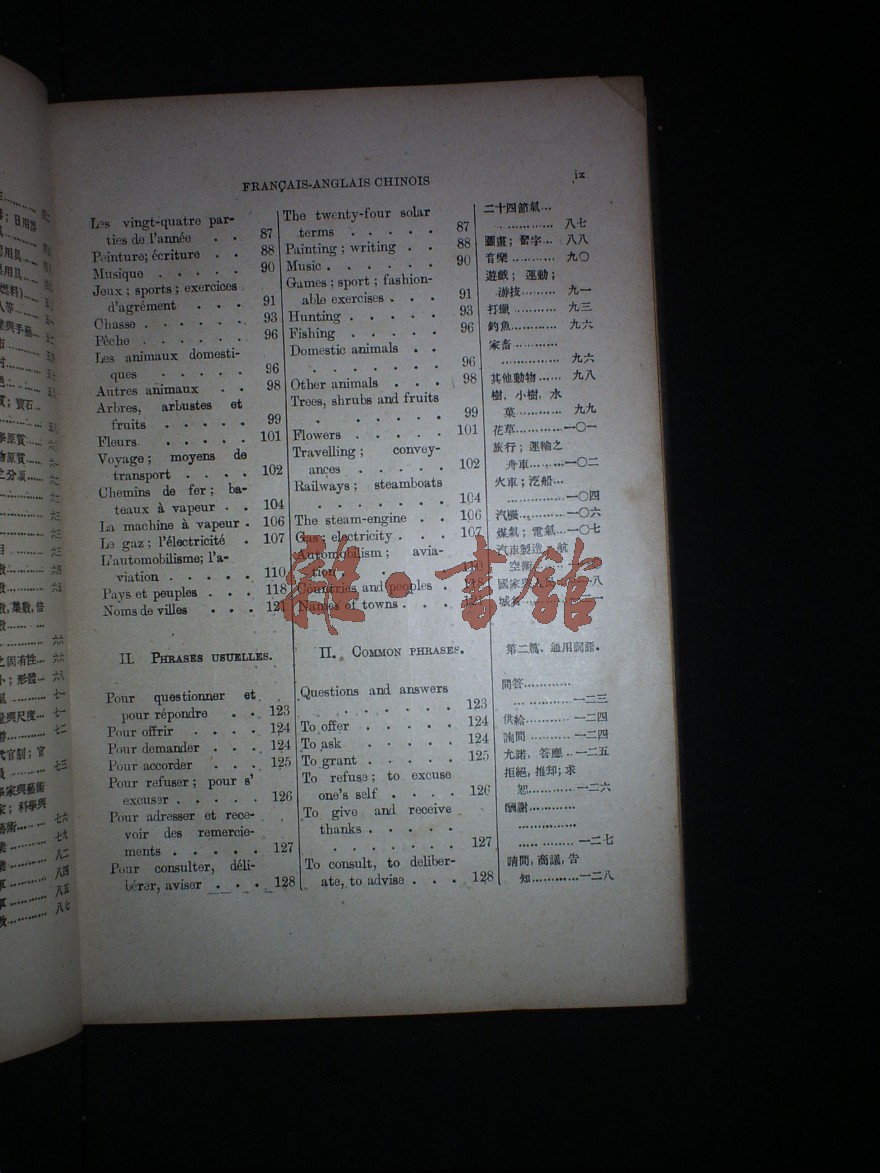 FRANÇAIS-ANGLAIS CHINOIS ix
Les vingt-quatre par-
ties de l'année . . 87
Peinture; écriture . . 88
Musique . . . . . 90
Jeux; sports; exercices
d'agrément . . . 91
Chasse . . . . . . 93
Pêche . . . . . . 96
Les animaux domesti-
ques . . . . . 96
Autres animaux . . 98
Arbres, arbustes et
fruits . . . . . 99
Fleurs . . . . . 101
Voyage; moyens de
transport . . . . 102
Chemins de fer; ba-
teaux à vapeur . . 104
La machine à vapeur . 106
Le gaz; l'électricité . 107
L'automobilisme; l'a-
viation . . . . . 110
Pays et peuples . . . 118
Noms de villes . . . 121
II. PHRASES USUELLES.
Pour questionner et
pour répondre . . 123
Pour offrir . . . . 124
Pour demander . . . 124
Pour accorder . . . 125
Pour refuser; pour s'
excuser . . . . . 126
Pour adresser et rece-
voir des remercie-
ments . . . . . 127
Pour consulter, déli-
bérer, aviser . . . 128
The twenty-four solar
terms . . . . . 87
Painting; writing . . 88
Music . . . . . . 90
Games; sport; fashion-
able exercises . . . 91
Hunting . . . . . 93
Fishing . . . . . 96
Domestic animals . .
. . . . . . . 96
Other animals . . . 98
Trees, shrubs and fruits
. . . . . . 99
Flowers . . . . . 101
Travelling; convey-
ances . . . . . 102
Railways; steamboats
. . . . . . . 104
The steam-engine . . 106
Gas; electricity . . . 107
Automobilism; avia-
tion . . . . . 110
Countries and peoples . 118
Names of towns . . . 121
II. COMMON PHRASES.
Questions and answers
. . . . . . . 123
To offer . . . . . 124
To ask . . . . . 124
To grant . . . . . 125
To refuse; to excuse
one's self . . . . 126
To give and receive
thanks . . . . .
. . . . . . . 127
To consult, to deliber-
ate, to advise . . . 128
二十四節氣...
............... 八七
圖畫; 習字... 八八
音樂 ............ 九〇
遊戲; 運動;
游技.......... 九一
打獵 ............ 九三
釣魚............. 九六
家畜 ............
................ 九六
其他動物...... 九八
樹, 小樹, 水
菓 ............ 九九
花草............一〇一
旅行; 運輸之
舟車.........一〇二
火車; 汽船...
...............一〇四
汽機............一〇六
煤氣; 電氣...一〇七
汽車製造, 航
空術
國家與
城名
第二篇. 通用詞語.
問答.............
...............一二三
供給............一二四
詢問............一二四
允諾, 答應...一二五
拒絕, 推却; 求
恕............一二六
酬謝............
...............
...............一二七
請問, 商議, 告
知............一二八
雜·書館